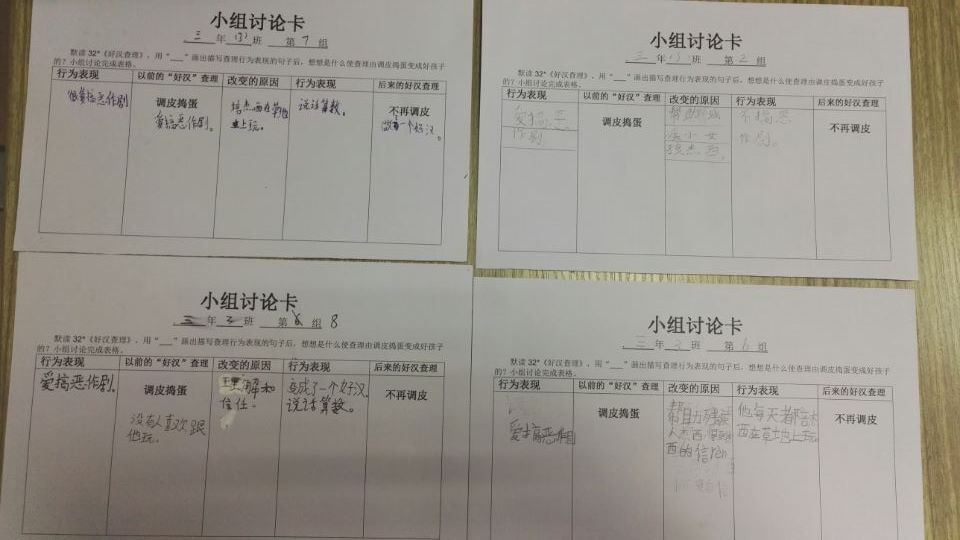 小组讨论卡
三 年 (3) 班 第 7 组
默读32*《好汉查理》，用“___”画出描写查理行为表现的句子后，想想是什么使查理由调皮捣蛋变成好孩子
的？小组讨论完成表格。
行为表现 以前的“好汉”查理 改变的原因 行为表现 后来的好汉查理
调皮捣蛋
爱搞恶作剧。
说话算数。
不再调皮
小组讨论卡
三 年 班 第 2 组
默读32*《好汉查理》，用“___”画出描写查理行为表现的句子后，想想是什么使查理由调皮捣蛋变成好孩子
的？小组讨论完成表格。
行为表现 以前的“好汉”查理 改变的原因 行为表现 后来的好汉查理
爱搞恶
作剧
调皮捣蛋
疾小女
孩杰西。
不搞恶
作剧。
不再调皮
小组讨论卡
三 年 3 班 第 组 8
默读32*《好汉查理》，用“___”画出描写查理行为表现的句子后，想想是什么使查理由调皮捣蛋变成好孩子
的？小组讨论完成表格。
行为表现 以前的“好汉”查理 改变的原因 行为表现 后来的好汉查理
爱搞恶作剧。
调皮捣蛋
没有人喜欢跟
他玩。
理解和
信任。
变成了一个好汉
说话算数。
不再调皮
小组讨论卡
三 年 3 班 第 6 组
默读32*《好汉查理》，用“___”画出描写查理行为表现的句子后，想想是什么使查理由调皮捣蛋变成好孩子
的？小组讨论完成表格。
行为表现 以前的“好汉”查理 改变的原因 行为表现 后来的好汉查理
爱搞恶作剧
调皮捣蛋
帮助残疾
人杰西
西的信
他每天都陪杰
西在草地上玩
不再调皮